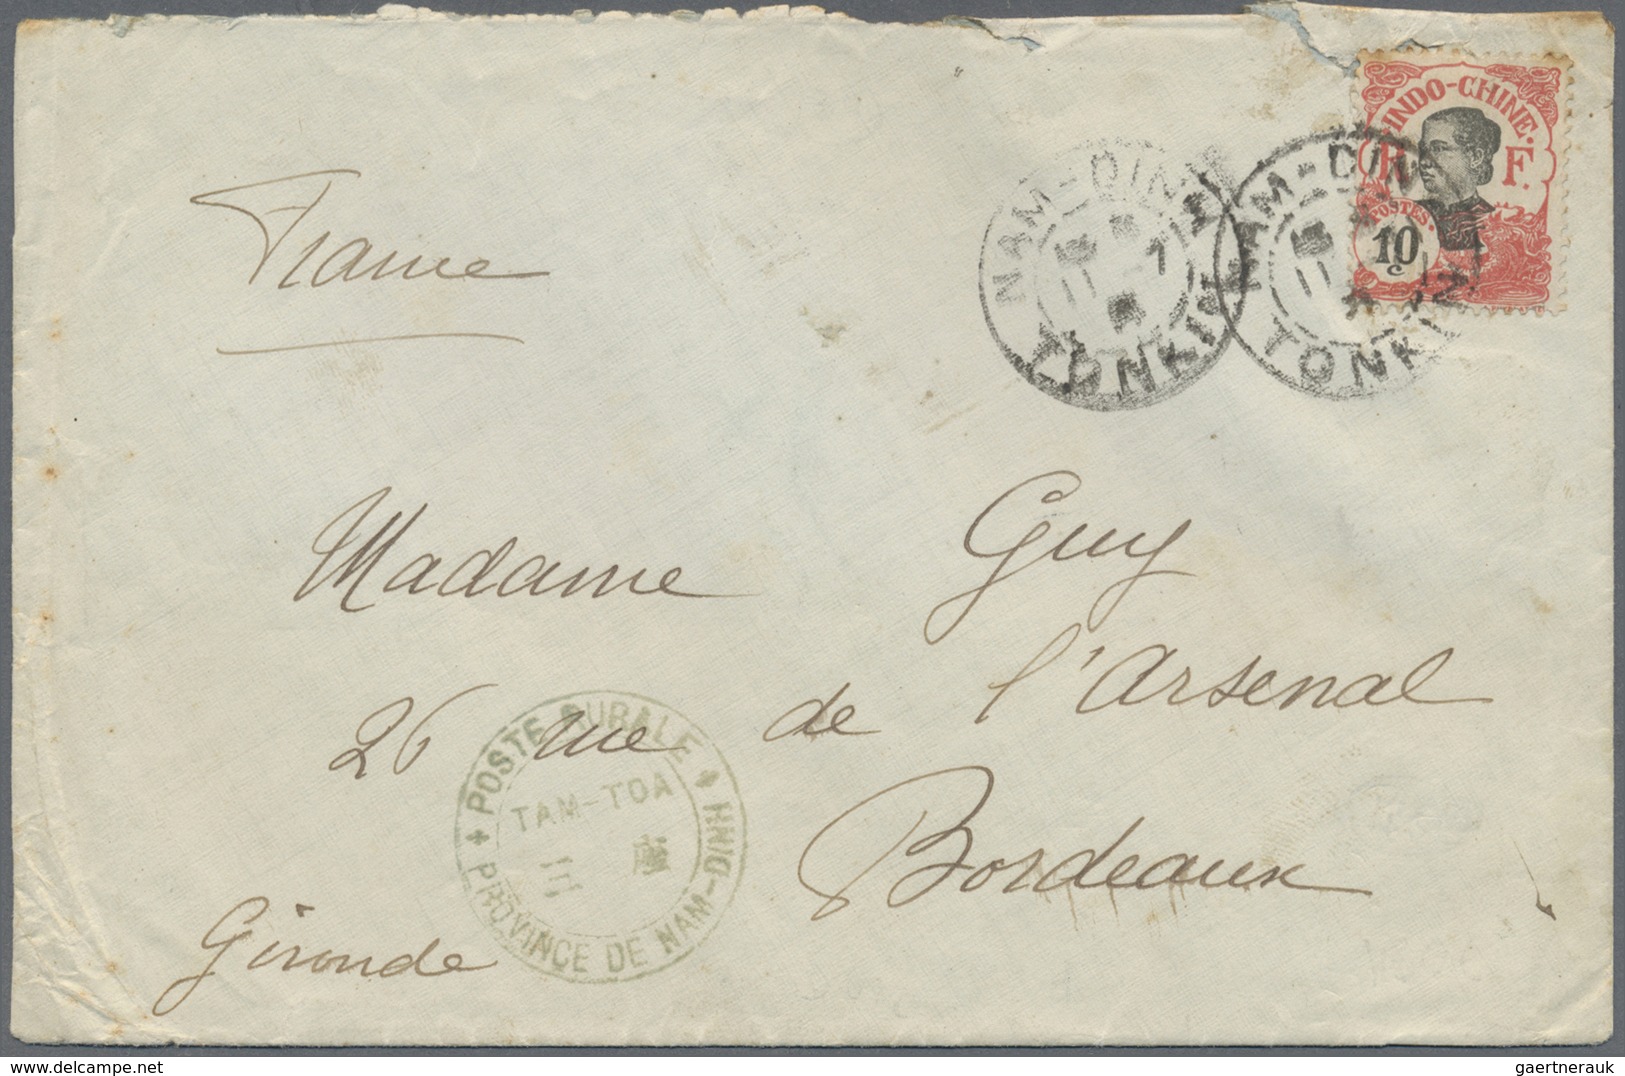 INDO-CHINE.
R F.
POSTES.
10
c
NAM-DINH
TONKIN
NAM-DINH
TONKIN
France
Madame Guy
26 rue de l'Arsenal
Bordeaux
Gironde
POSTE RURALE
TAM-TOA
PROVINCE DE NAM-DINH
gaertnerauk